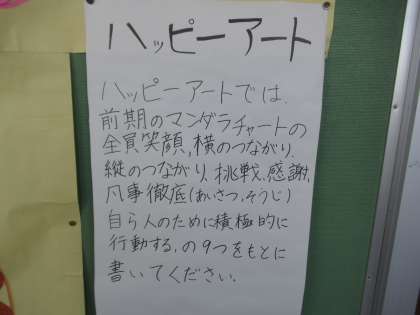 ハッピーアート
ハッピーアートでは、
前期のマンダラチャートの
全員笑顔、横のつながり、
縦のつながり、挑戦、感謝、
凡事徹底(あいさつ、そうじ)
自ら人のために積極的に
行動する、の9つをもとに
書いてください。